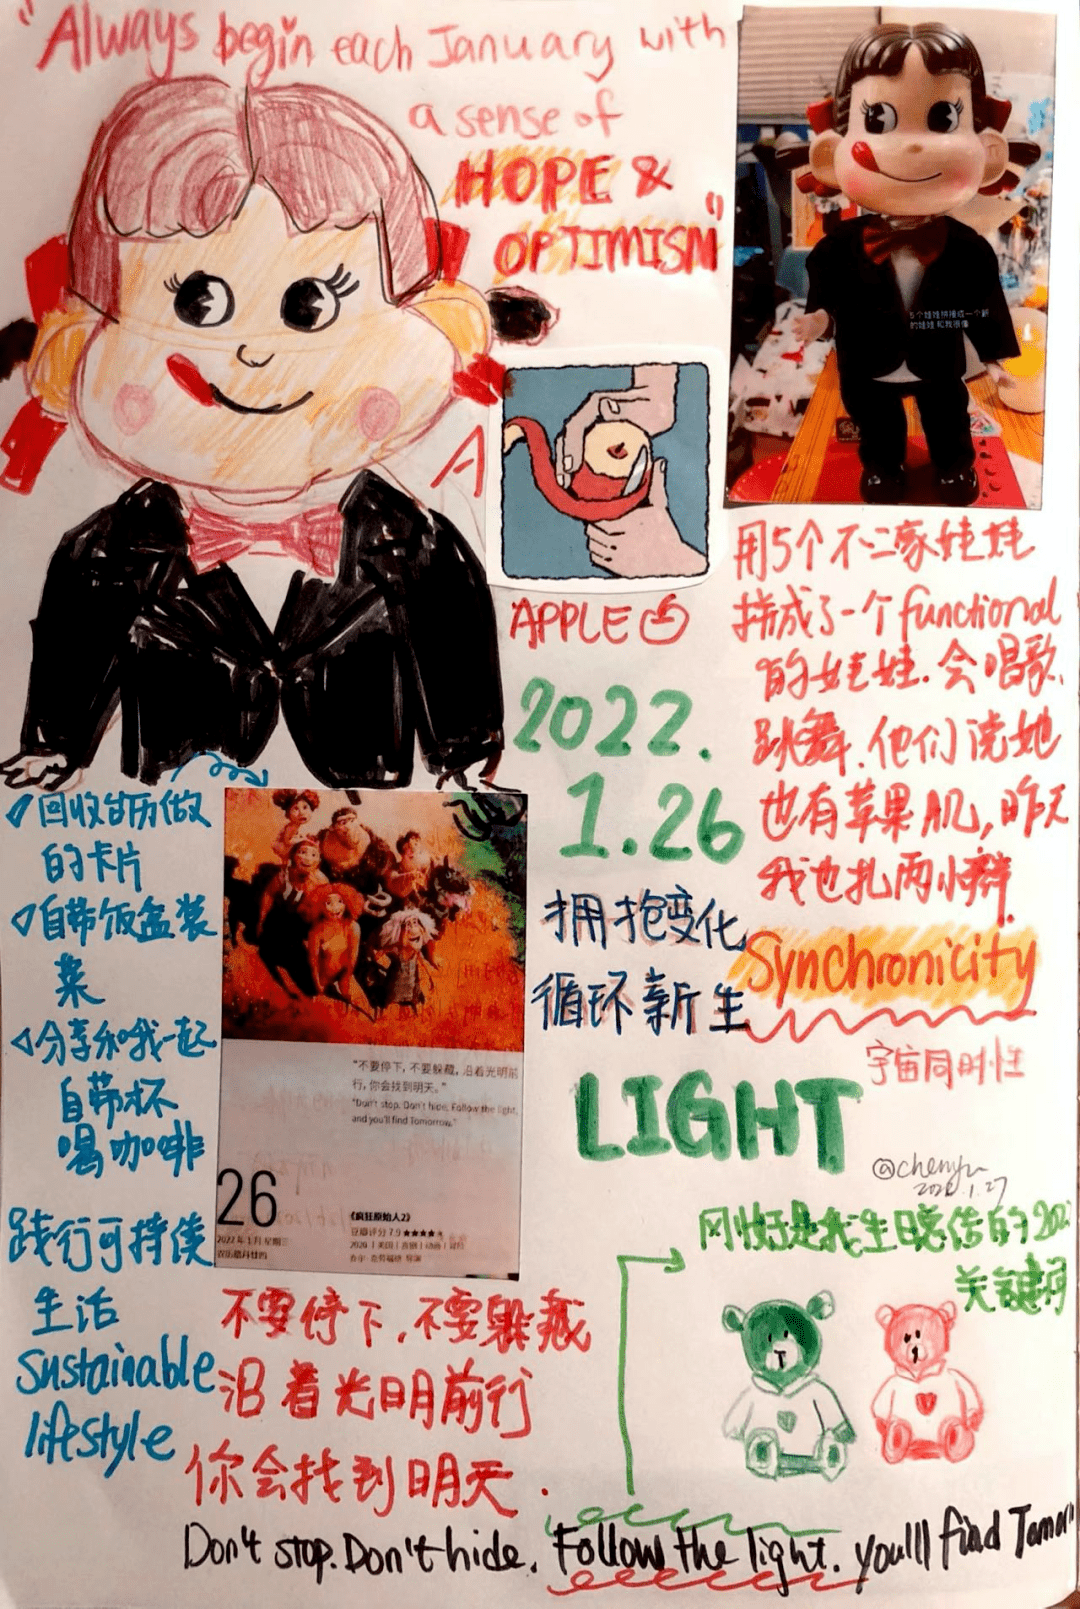 "Always begin each January with
a sense of
HOPE &
OPTIMISM"
5个娃娃拼接成一个新
的娃娃 和我很像
A
APPLE
用5个不二家娃娃
拼成了一个functional
的娃娃.会唱歌、
跳舞.他们说她
也有苹果肌,昨天
我也扎两小辫.
2022.
1.26
拥抱变化
循环新生
Synchronicity
宇宙同时性
LIGHT
@chenyu
2022.1.27
刚好是我生日宣传的2022
关键词
回收台历做
的卡片
自带饭盒装
菜
分享和我一起
自带杯
喝咖啡
践行可持续
生活
Sustainable
lifestyle
"不要停下,不要躲藏,沿着光明前
行,你会找到明天。"
"Don't stop. Don't hide. Follow the light,
and you'll find Tomorrow."
26
2022年1月 星期三
农历腊月廿四
《疯狂原始人2》
豆瓣评分 7.9 ★★★★
2020 | 美国 | 喜剧 | 动画 | 冒险
不要停下,不要躲藏
沿着光明前行
你会找到明天.
Don't stop. Don't hide. Follow the light. you'll find Tomorr